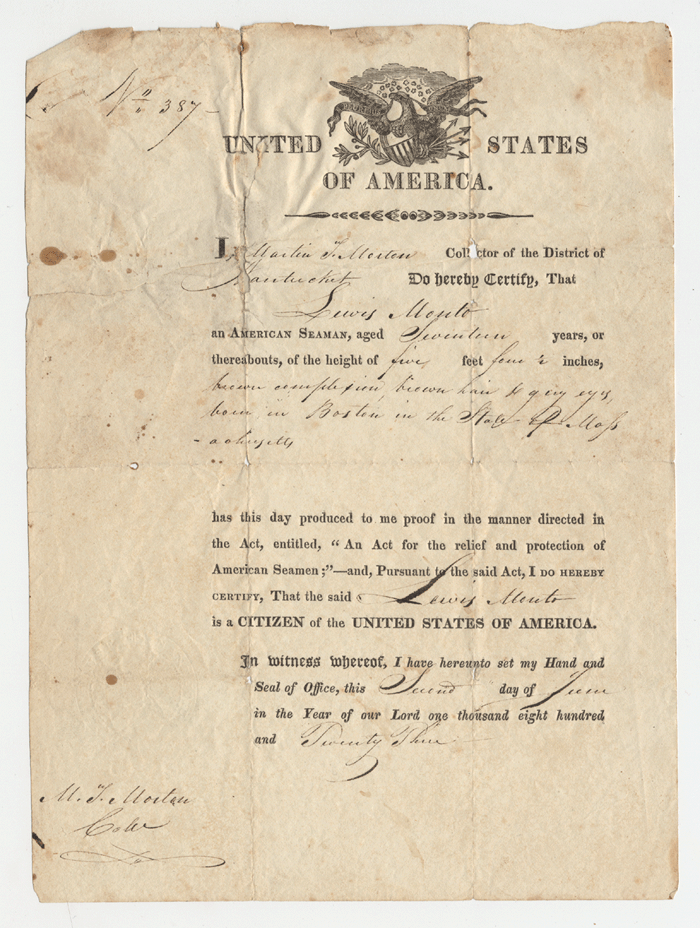 No 387
UNITED STATES
OF AMERICA.
I, Martin T. Morton Collector of the District of
Nantucket Do hereby Certify, That
Lewis Monto
an AMERICAN SEAMAN, aged years, or
thereabouts, of the height of five feet four ½ inches,
brown complexion, brown hair & grey eyes,
born in Boston in the State of Mass
-achusetts
has this day produced to me proof in the manner directed in
the Act, entitled, “An Act for the relief and protection of
American Seamen;”—and, Pursuant to the said Act, I DO HEREBY
CERTIFY, That the said Lewis Monto
is a CITIZEN of the UNITED STATES OF AMERICA.
In witness whereof, I have hereunto set my Hand and
Seal of Office, this Second day of June
in the Year of our Lord one thousand eight hundred
and Twenty Three
M. T. Morton
Collr